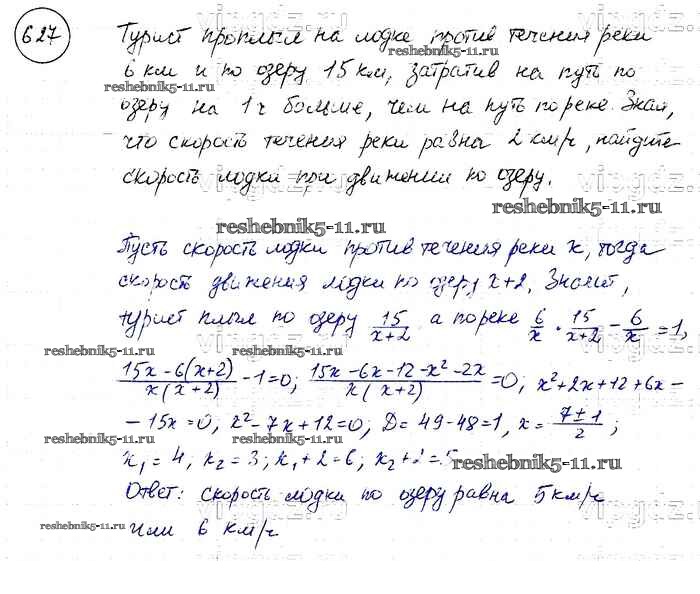 627
Турист проплыл на лодке против течения реки
6 км и по озеру 15 км, затратив на путь по
озеру на 1 ч больше, чем на путь по реке. Зная,
что скорость течения реки равна 2 км/ч, найдите
скорость лодки при движении по озеру.
reshebnik5-11.ru
Пусть скорость лодки против течения реки x, тогда
скорость движения лодки по озеру x+2. Значит,
турист плыл по озеру 15/(x+2) а по реке 6/x. 15/(x+2) - 6/x = 1,
(15x - 6(x+2))/(x(x+2)) - 1 = 0; (15x - 6x - 12 - x² - 2x)/(x(x+2)) = 0, x² + 2x + 12 + 6x -
- 15x = 0, x² - 7x + 12 = 0, D = 49 - 48 = 1, x = (7±1)/2;
x₁ = 4, x₂ = 3; x₁ + 2 = 6, x₂ + 2 = 5
Ответ: скорость лодки по озеру равна 5 км/ч
или 6 км/ч
reshebnik5-11.ru
reshebnik5-11.ru
reshebnik5-11.ru
reshebnik5-11.ru
reshebnik5-11.ru
reshebnik5-11.ru
reshebnik5-11.ru
reshebnik5-11.ru